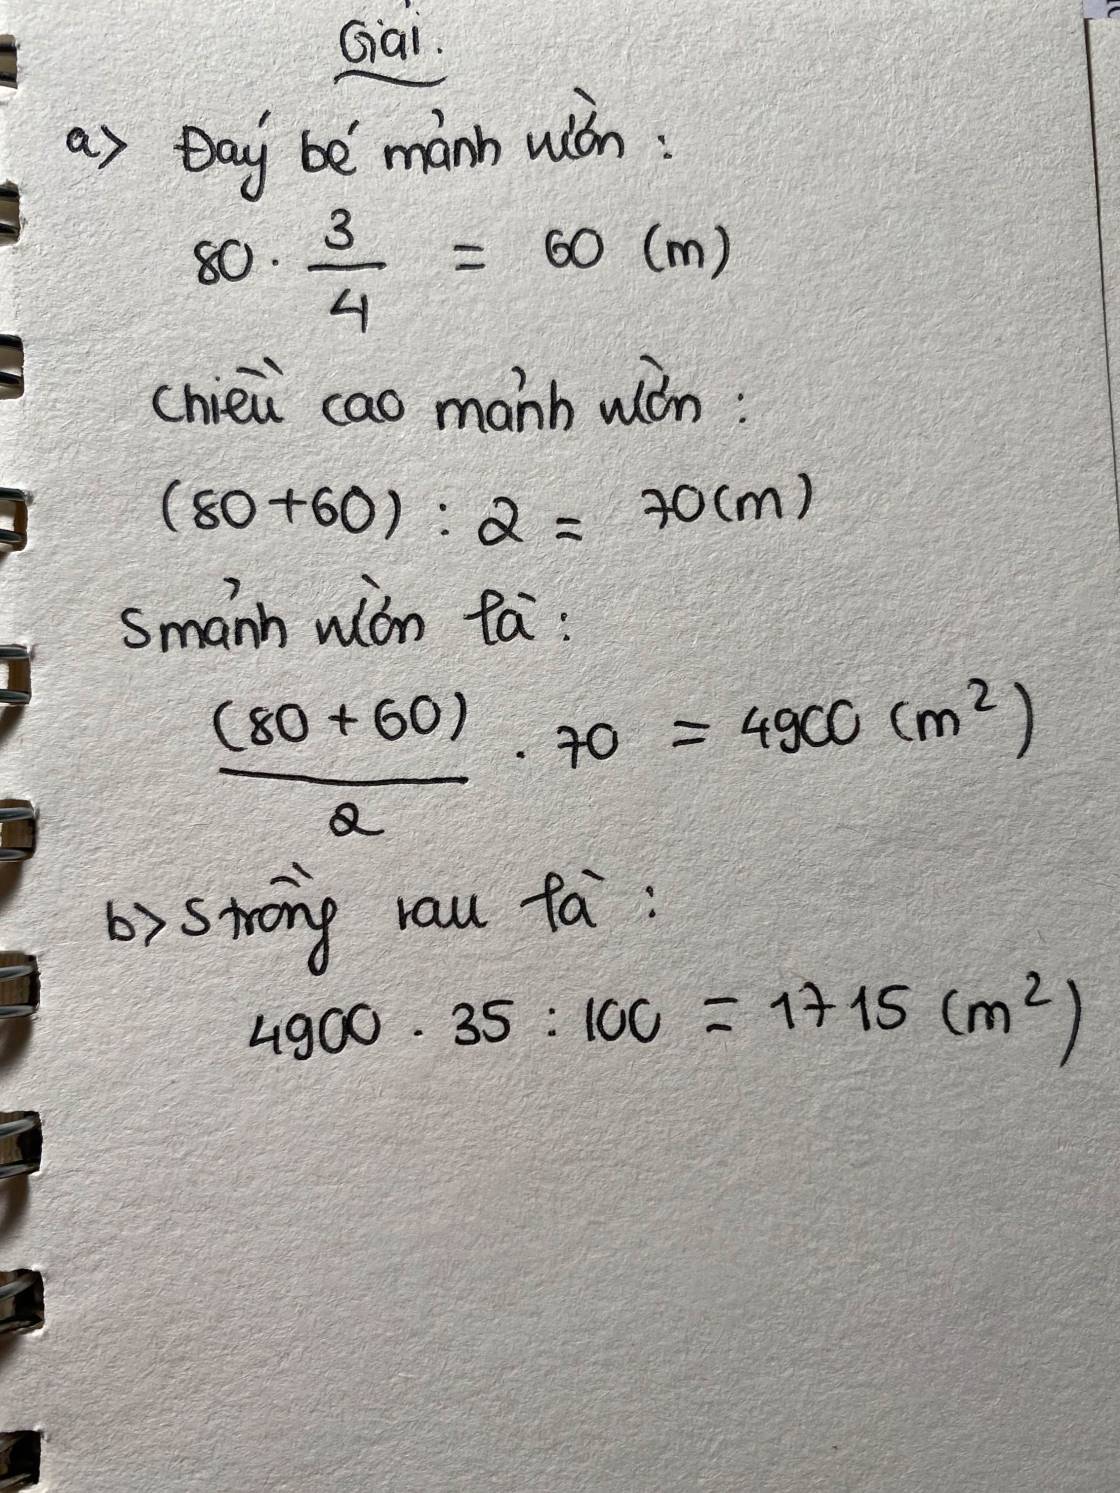 Giải.
a> Đáy bé mảnh vườn :
80 . 3/4 = 60 (m)
Chiều cao mảnh vườn :
(80+60) : 2 = 70(m)
S mảnh vườn là :
(80 + 60)/2 . 70 = 4900 (m²)
b> S trồng rau là :
4900 . 35 : 100 = 1715 (m²)